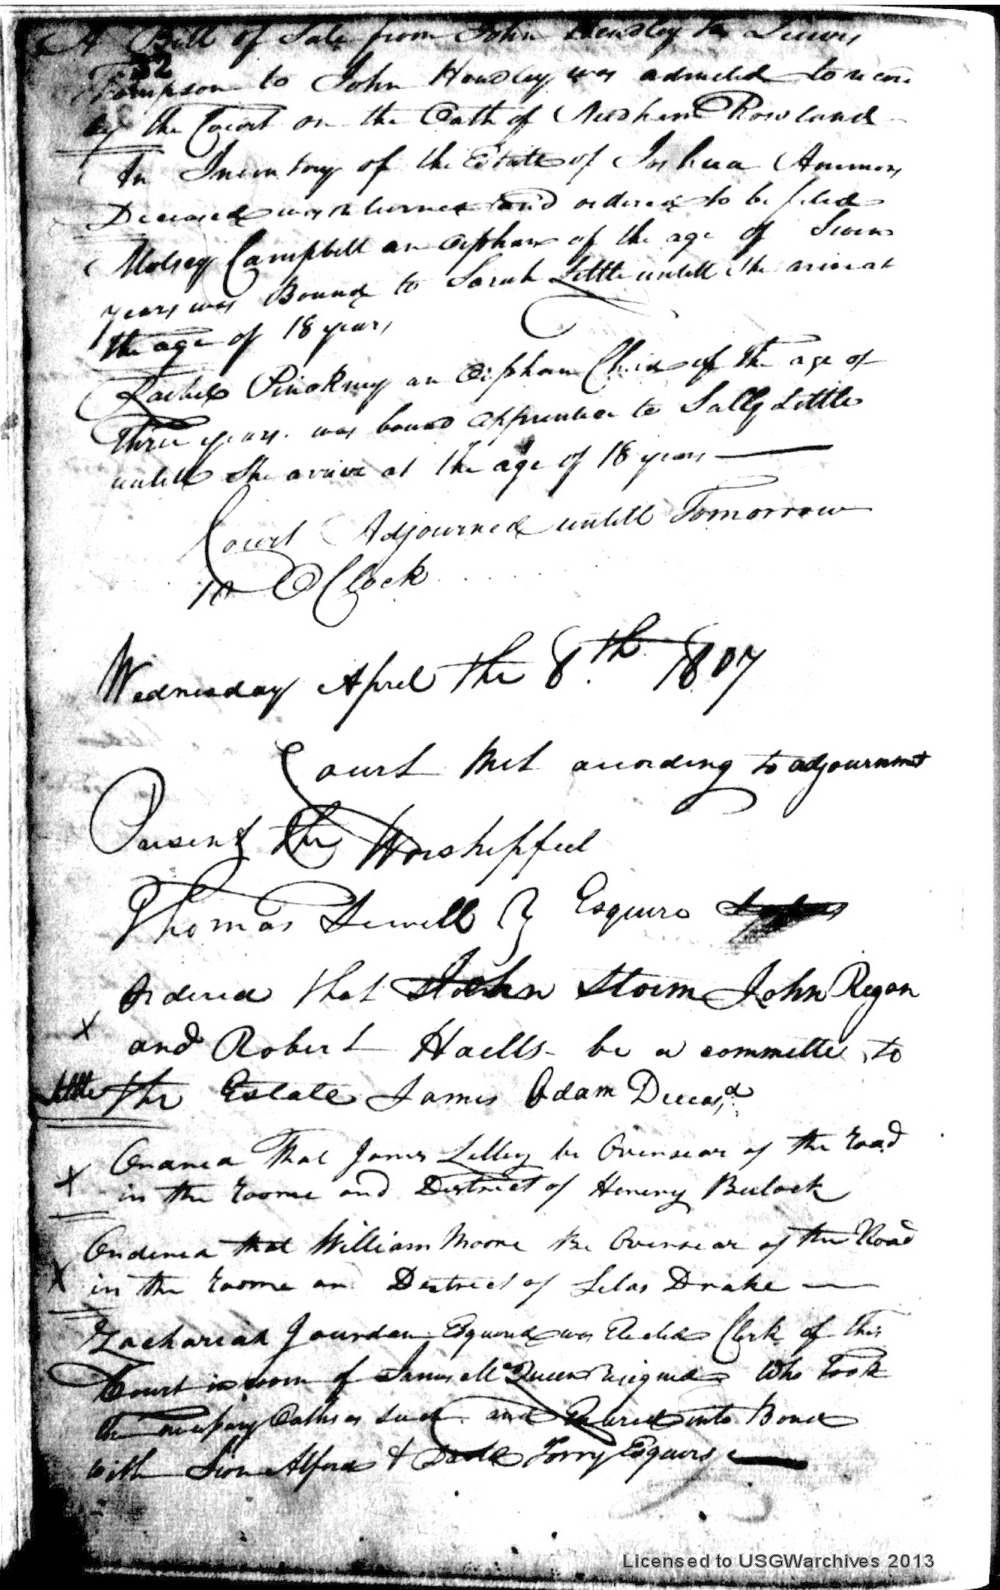 A Bill of Sale from John Hendley to Lewis
32
Tompson to John Hendley was admited to record
by the Court on the Oath of Needham Rowland
An Inventory of the Estate of Joshua Ammons
Deceased was returned and ordered to be filed
Molsey Campbell an orphan of the age of Seven
years was Bound to Sarah Little untill she arive at
the age of 18 years
Rachel Pinckney an orphan Child of the age of
three years was bound apprentice to Sally Little
untill she arive at the age of 18 years
Court Adjourned untill Tomorrow
10 O Clock
Wednesday April the 8th 1807
Court Met acording to adjournmt
Present the Worshipfful
Thomas Sewell Esquire
ordered that Storm John Regan
and Robert Haells be a committe to
settle the Estate James Odam Deceasd
Ordered That James Lilley be Overseear of the Road
in the roome and District of Henery Bulock
Ordered that William Moore Be Overseear of the Road
in the roome an District of Silas Drake
Zachariah Jourdan Esquire was Elected Clerk of this
Court in room of James McQueen Resigned Who took
the necessary Oaths as such and Entered into Bond
with Sion Alford & Torry Esquirs
Licensed to USGWarchives 2013